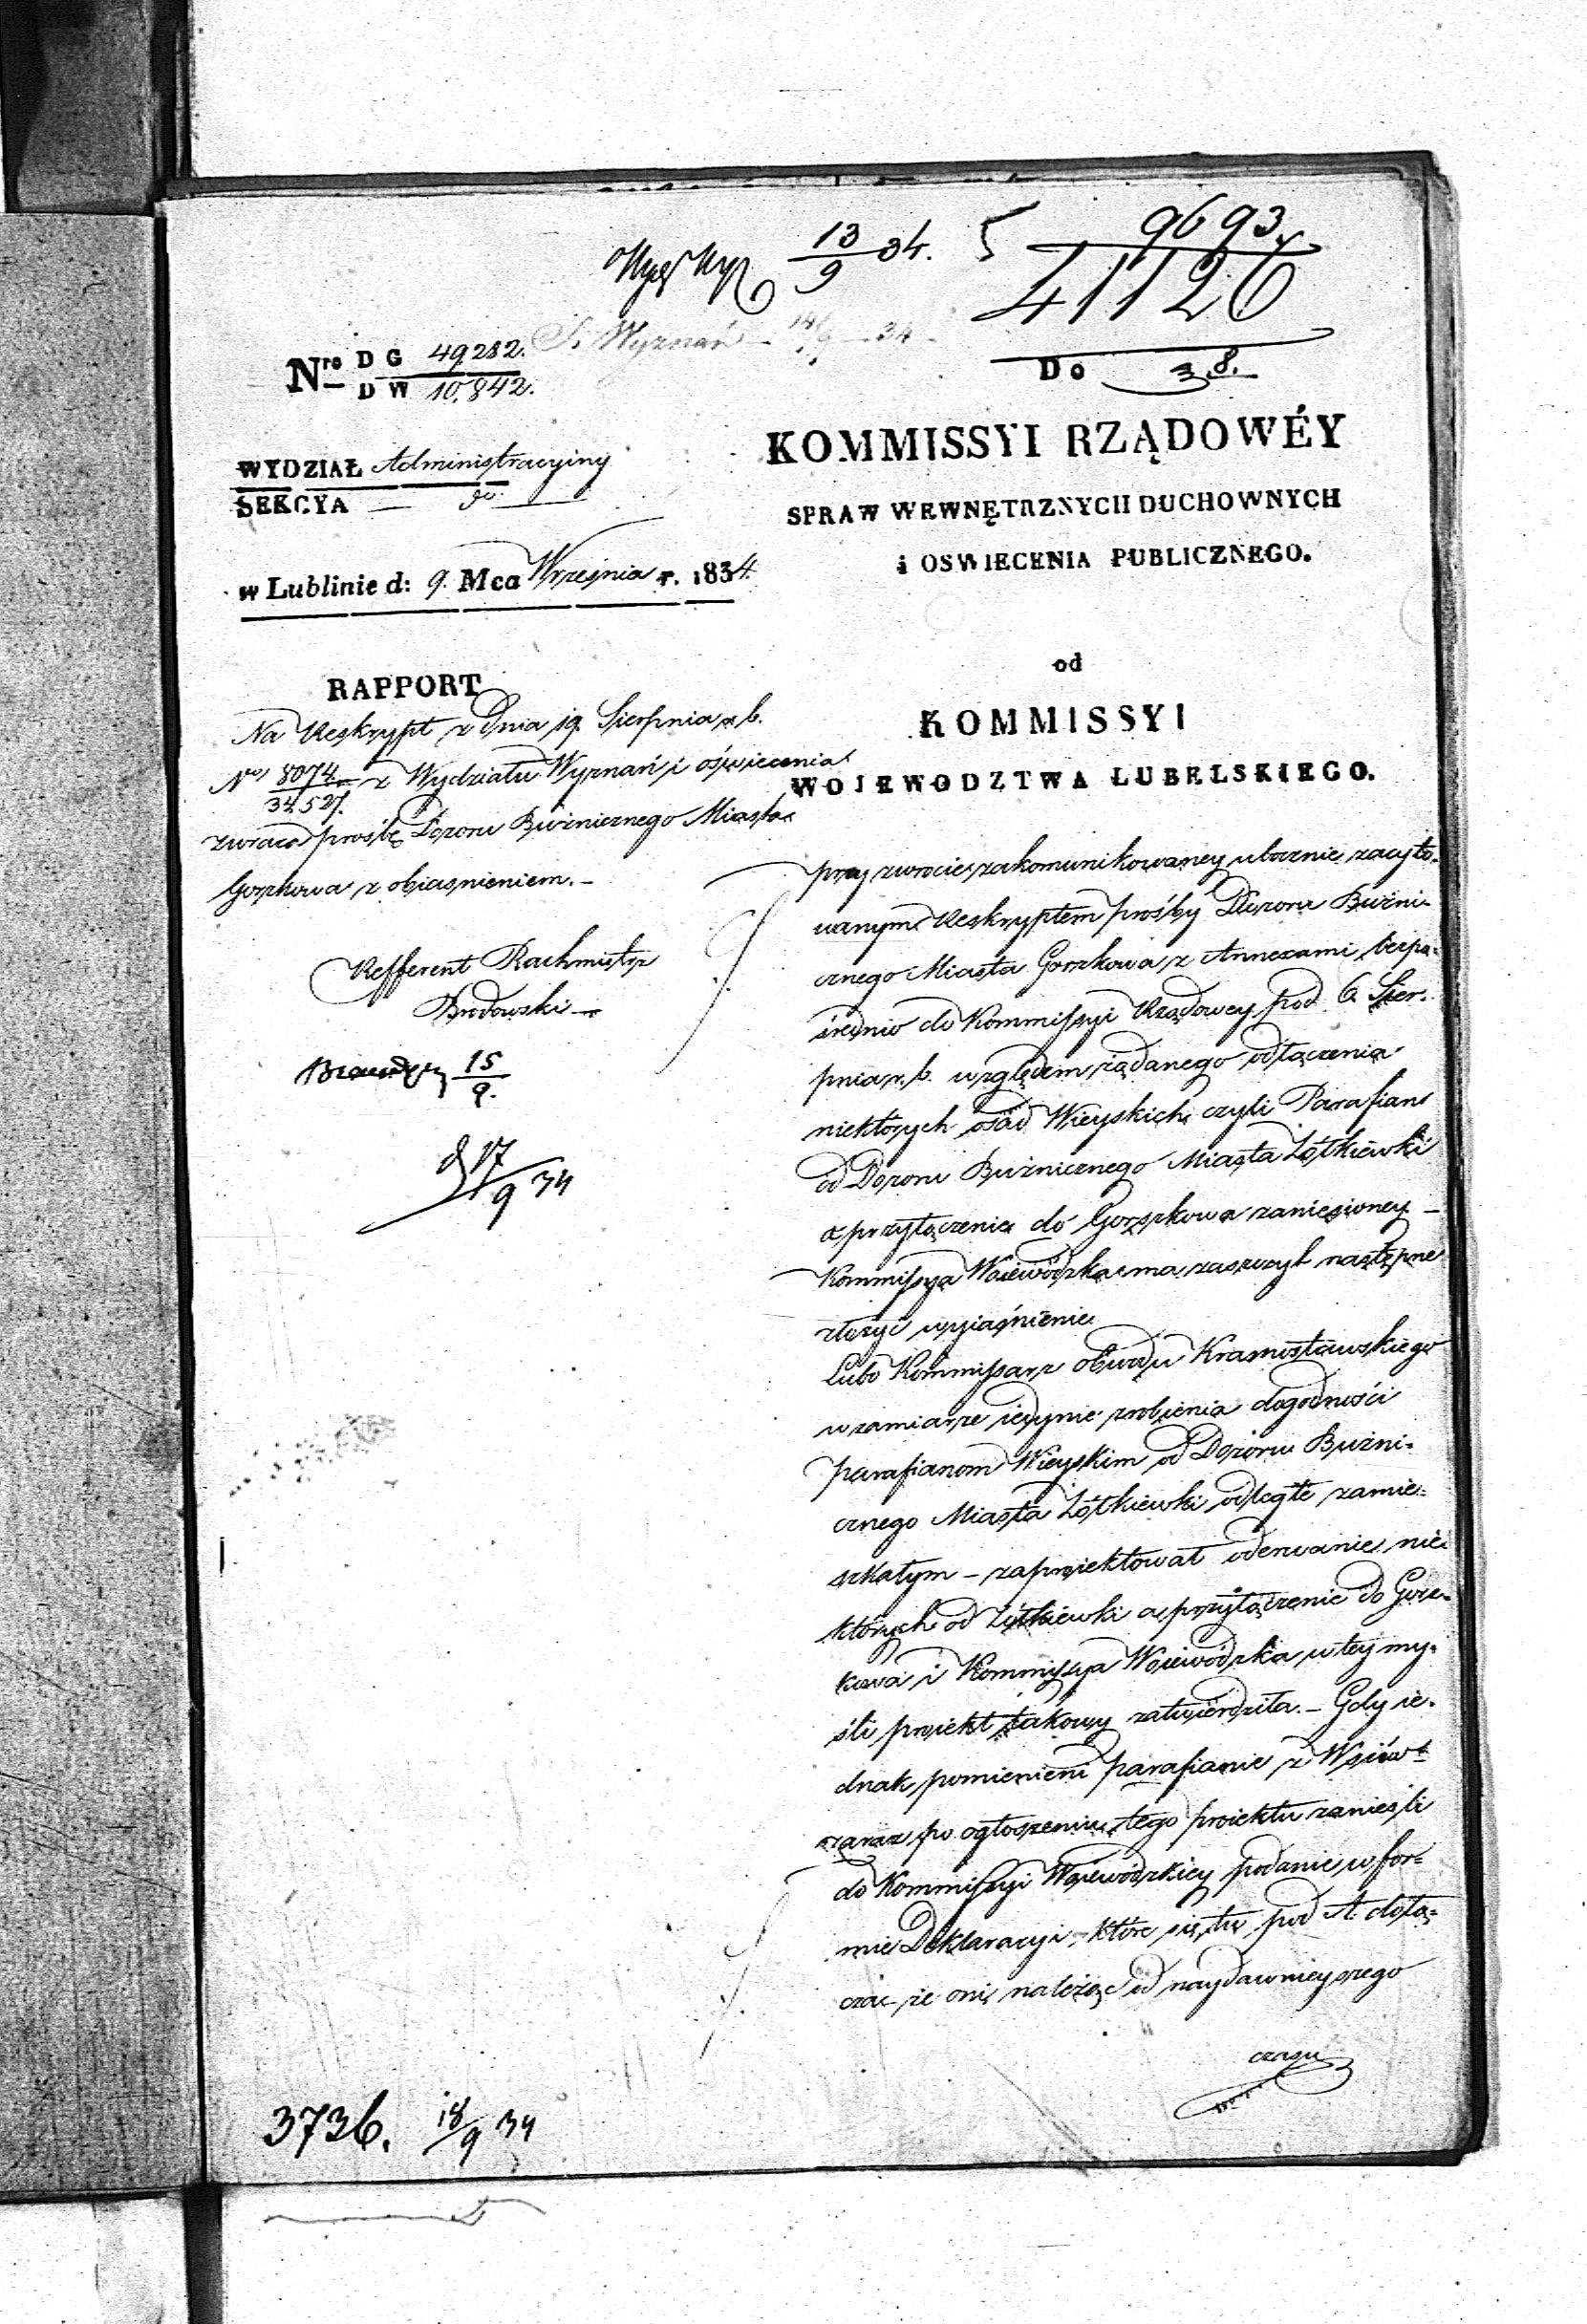 13/9 34. 5 9693
41126
S. Wyznań 14/9 34
Nro D G 49282.
D W 10.842.
Do 3.8.
KOMMISSYI RZĄDOWÉY
SPRAW WEWNĘTRZNYCH DUCHOWNYCH
i OSWIECENIA PUBLICZNEGO.
WYDZIAŁ Administracyiny
SEKCYA — do —
w Lublinie d: 9. Mca Września r. 1834.
od
KOMMISSYI
WOJEWODZTWA LUBELSKIEGO.
RAPPORT
Na Reskrypt z Dnia 19. Sierpnia r. b.
No 8074/34527. z Wydziału Wyznań i oświecenia
zwraca prośbę Dozoru Bużnicznego Miasta
Gorzkowa z obiaśnieniem. –
Refferent Rachmistrz
Brodowski
15/9.
d 17/9 34
przy zwrocie zakomunikowaney ubocznie zacyto-
wanym Reskryptem prośby Dozoru Bużni-
cznego Miasta Gorzkowa z Annexami, bezpo-
średnio do Kommissyi Rządowey pod 6. Sier-
pnia r. b. względem żądanego odłączenia
niektórych osad Wieyskich czyli Parafian
od Dozoru Bużnicznego Miasta Żółkiewki
a przyłączenia do Gorzkowa zaniesioney –
Kommissya Woiewódzka ma zaszczyt następne
złożyć wyiaśnienie
Lubo Kommissarz obwodu Krasnostawskiego
w zamiarze iedynie zrobienia dogodności
parafianom Wieyskim od Dozoru Bużni-
cznego Miasta Żółkiewki odległe zamie-
szkałym – zaproiektował oderwanie nie-
których od Żółkiewki a przyłączenie do Gorz-
kowa i Kommissya Woiewódzka w tey my-
śli proiekt takowy zatwierdziła. – Gdy ie-
dnak pomienieni parafianie z Wsiów
zaraz po ogłoszeniu tego proiektu zanieśli
do Kommissyi Woiewódzkiey podanie w for-
mie Deklaracyi, które się tu pod A dołą-
cza – że oni należąc od naydawnieyszego
czasu
3736. 18/9 34